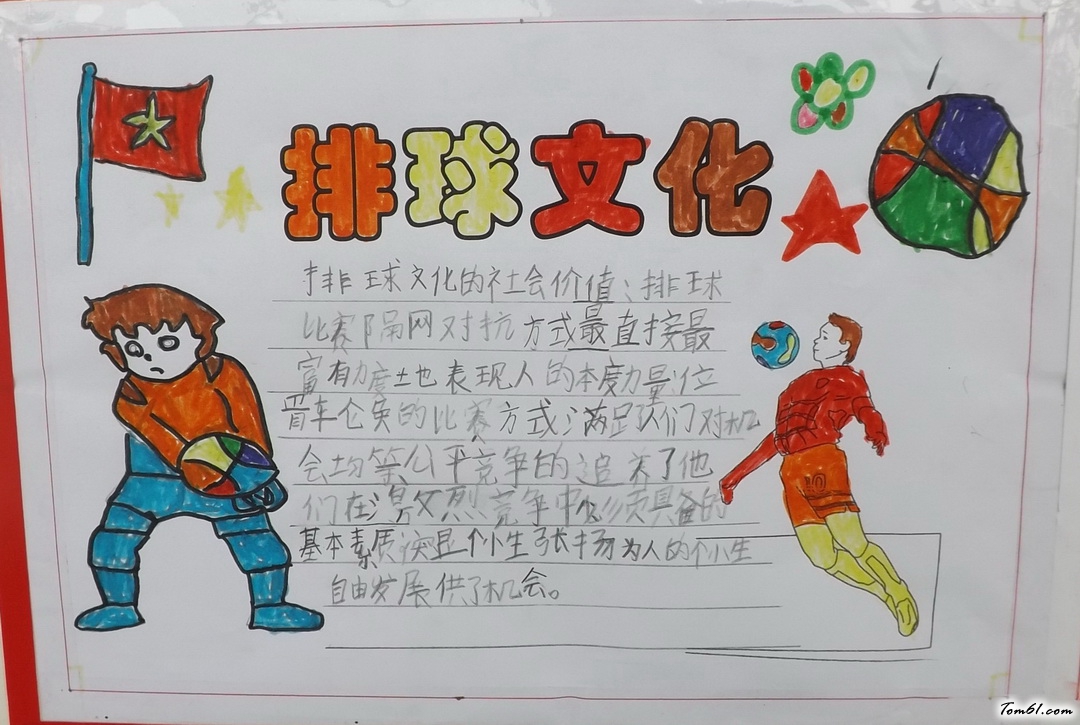 排球文化
排球文化的社会价值：排球
比赛隔网对抗方式最直接最
富有力度地表现人的本度力量位
晋车仑矣的比赛方式；满足队们对机
会均等公平竞争的追 养了他
们在 烈竞争中必须具备的
基本素质 突显个小生张扬为人的个小生
自由发展供了机会。
Tom61.com